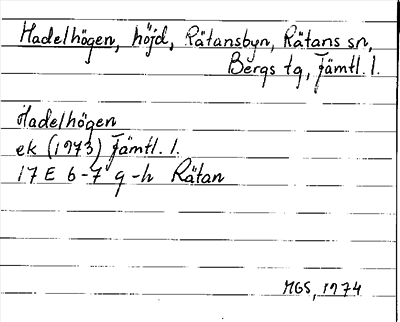 Hadelhögen, höjd, Rätansbyn, Rätans sn,
Bergs tg, Jämtl. l.
Hadelhögen
ek (1973) Jämtl. l.
17 E 6-7 g-h Rätan
MGS, 1974